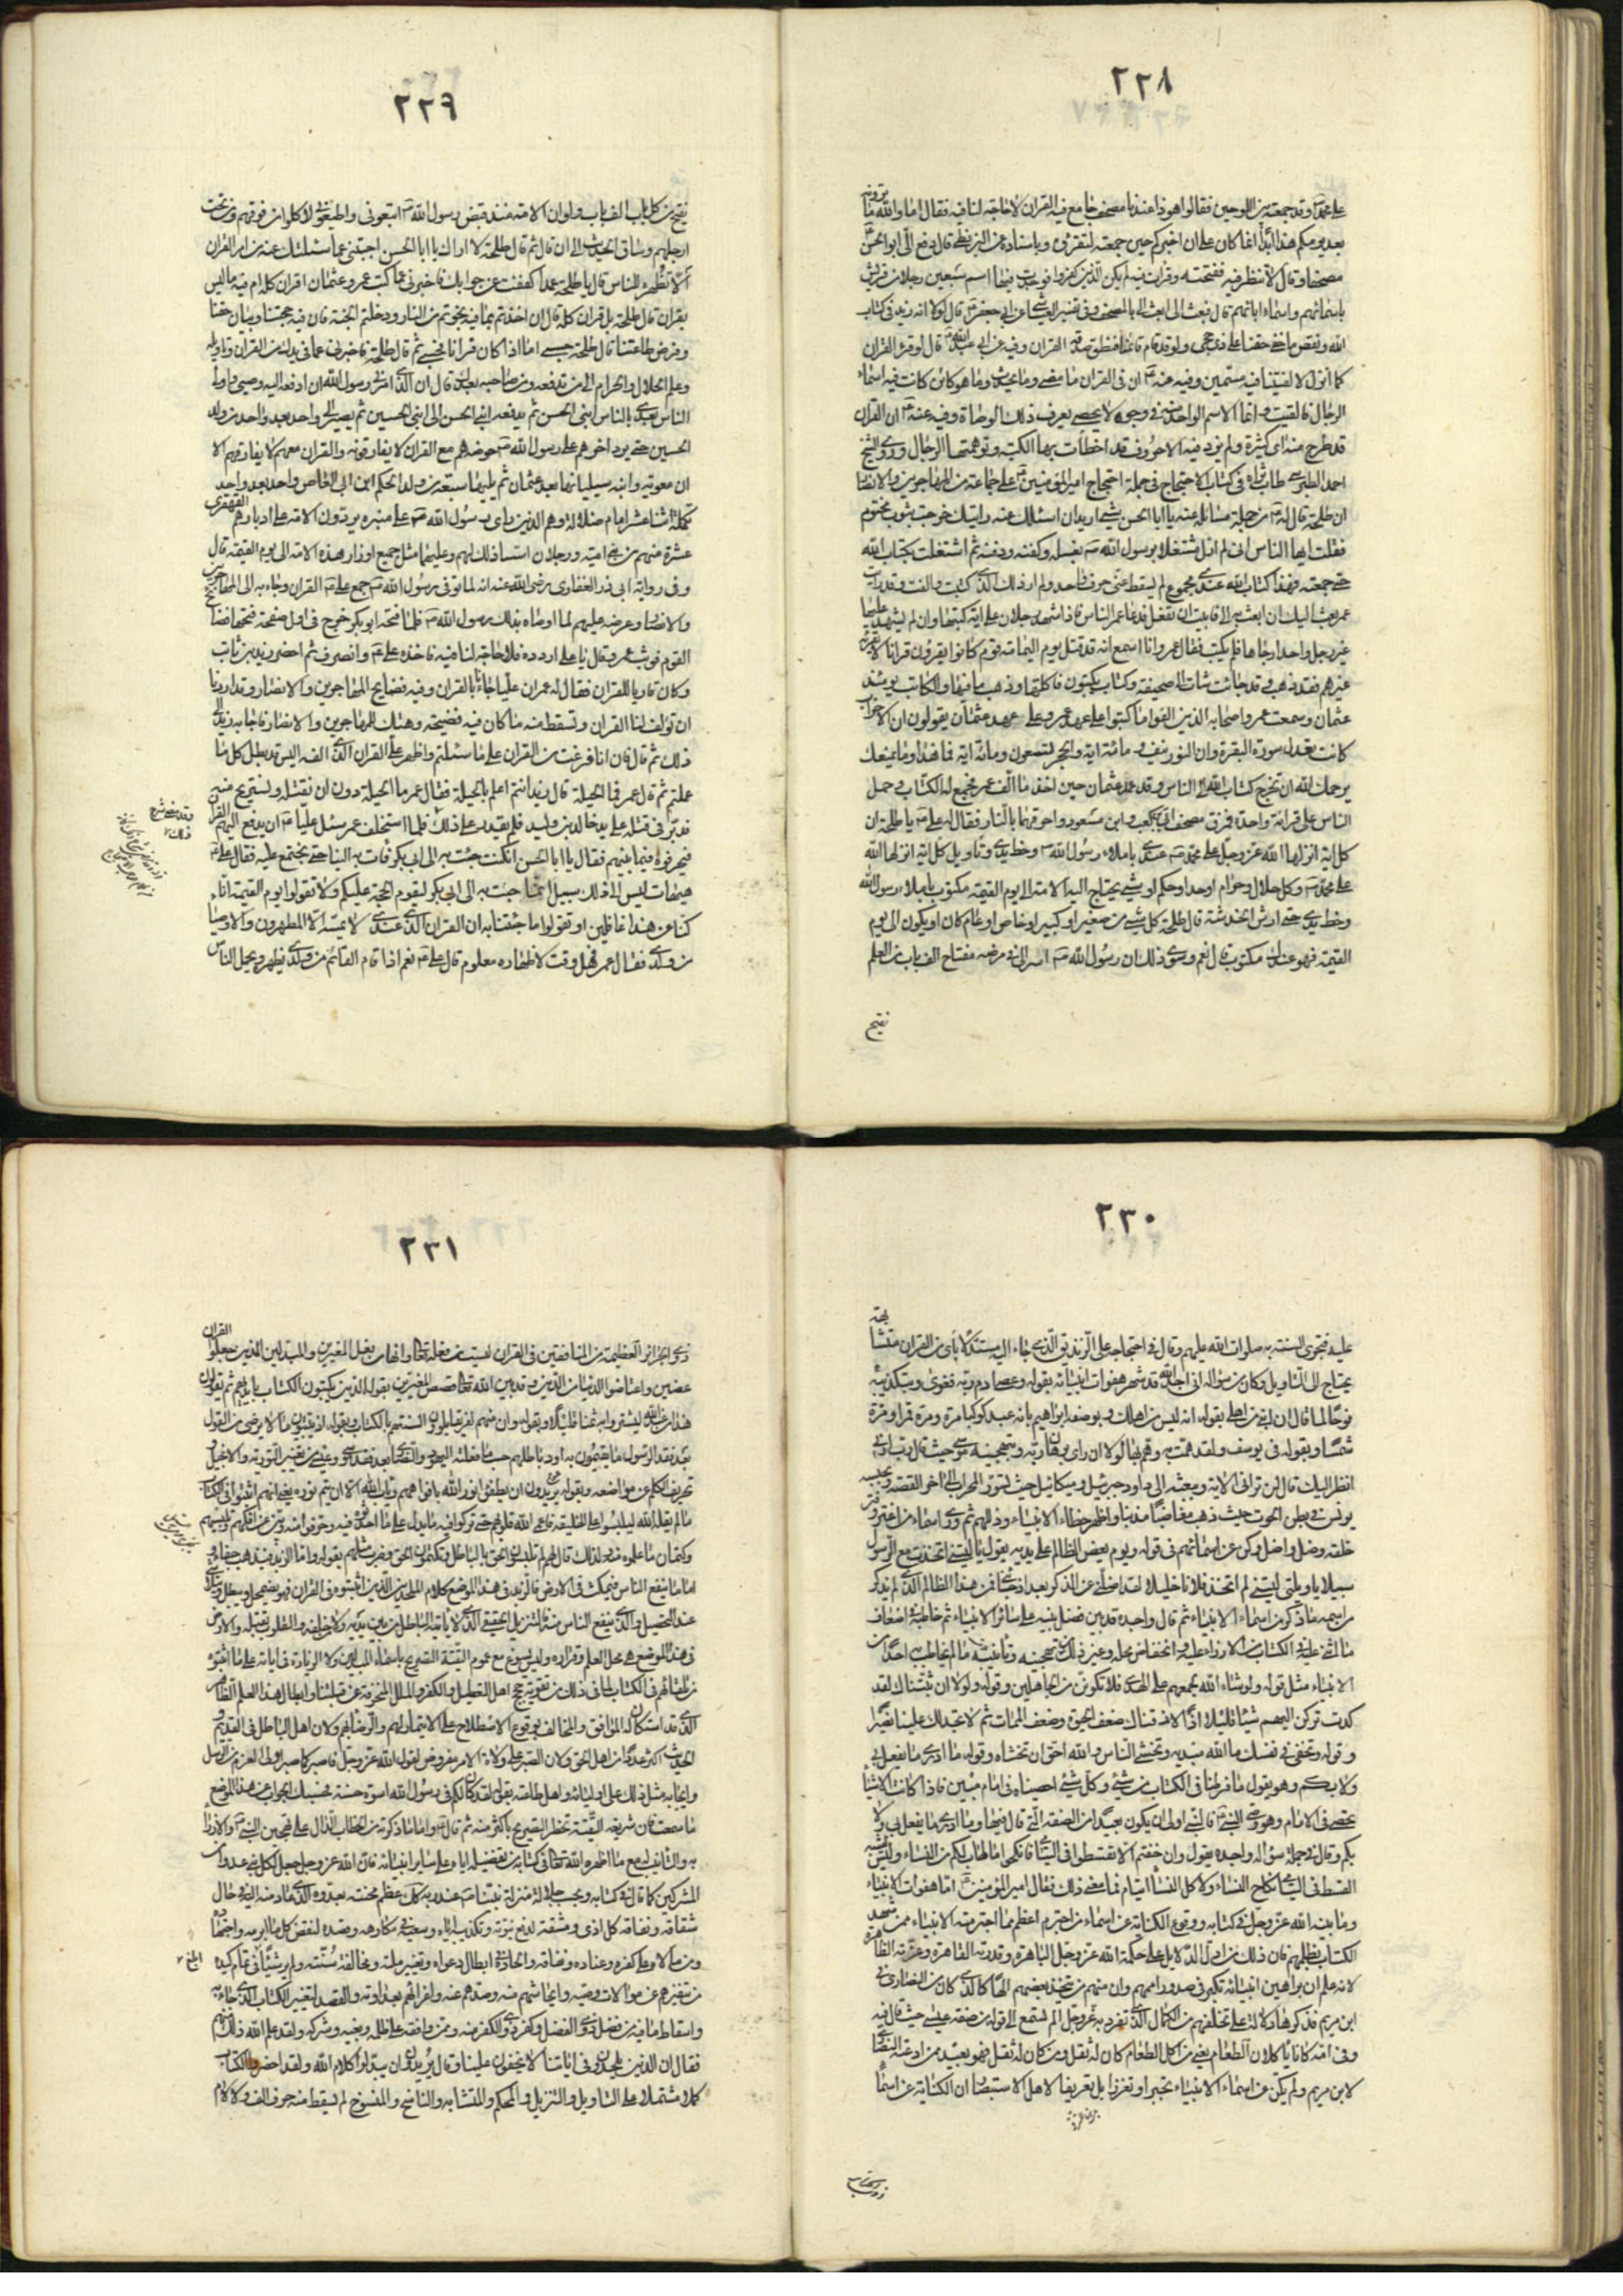 ٢٢٨
على محمد ص وقد جمعته بين اللوحين فقالوا هو ذا عندنا مصحف جامع فيه القران لا حاجة لنا فيه فقال اما والله ما ترونه
بعد يومكم هذا ابدا انما كان على ان اخبركم حين جمعته لتقرؤه وباسناده عن البزنطى قال دفع الى ابو الحسن
مصحفا وقال لا تنظر فيه ففتحته وقرات فيه لم يكن الذين كفروا فوجدت فيها اسم سبعين رجلا من قريش
باسمائهم واسماء ابائهم قال فبعث الى ابعث الى بالمصحف وفى تفسير العياشى عن ابى جعفر قال لولا انه زيد فى كتاب
الله ونقص ما خفى حقنا على ذى حجى ولو قد قام قائمنا فنطق صدقه القران وفيه عن ابى عبد الله قال لو قرء القران
كما انزل لالفيتنا فيه مسمين وفيه عنه ان فى القران ما مضى وما يحدث وما هو كائن كانت فيه اسماء
الرجال فالقيت وانما الاسم الواحد منه فى وجوه لا يحصى يعرف ذلك الوصاة وفيه عنه ان القران
قد طرح منه اى كثيرة ولم يزد فيه الا حروف قد اخطات بها الكتبة وتوهمتها الرجال وروى الشيخ
احمد الطبرسى طاب ثراه فى كتاب الاحتجاج فى جملة احتجاج امير المؤمنين على جماعة من المهاجرين والانصار
ان طلحة قال له من جملة مسائله عنه يا ابا الحسن شىء اريد ان اسئلك عنه رايتك خرجت بثوب مختوم
فقلت ايها الناس انى لم ازل مشتغلا برسول الله ص بغسله وكفنه ودفنه ثم اشتغلت بكتاب الله
حتى جمعته فهذا كتاب الله عندى مجموع لم يسقط عنى حرف واحد ولم ار ذلك الذى كتبت والفت وقد رايت
عمر بعث اليك ان ابعث به الى فابيت ان تفعل فدعا عمر الناس فاذا شهد رجلان على اية كتبها وان لم يشهد عليها
غير رجل واحد ارجاها فلم يكتب فقال عمر وانا اسمع انه قد قتل يوم اليمامة قوم كانوا يقرؤن قرانا لا يقرؤه
غيرهم فقد ذهب وقد جائت شاة الى صحيفة وكتاب يكتبون فاكلتها وذهب ما فيها والكاتب يومئذ
عثمان وسمعت عمر واصحابه الذين الفوا ما كتبوا على عهد عمر وعلى عهد عثمان يقولون ان الاحزاب
كانت تعدل سورة البقرة وان النور نيف ومائة اية والحجر تسعون ومائة اية فما هذا وما يمنعك
يرحمك الله ان تخرج كتاب الله الى الناس وقد عهد عثمان حين اخذ ما الف عمر فجمع له الكتاب وحمل
الناس على قرائة واحدة فمزق مصحف ابى بن كعب وابن مسعود واحرقهما بالنار فقال له على يا طلحة ان
كل اية انزلها الله عز وجل على محمد ص عندى باملاء رسول الله ص وخط يدى وتاويل كل اية انزلها الله
على محمد ص وكل حلال وحرام او حد او حكم او شىء يحتاج اليه الامة الى يوم القيمة مكتوب باملاء رسول الله
وخط يدى حتى ارش الخدش قال طلحة كل شىء من صغير او كبير او خاص او عام كان او يكون الى يوم
القيمة فهو عندك مكتوب قال نعم وسوى ذلك ان رسول الله ص اسر الى فى مرضه مفتاح الف باب من العلم
يفتح
٢٢٩
يفتح من كل باب الف باب ولو ان الامة منذ قبض رسول الله ص اتبعونى واطيعونى لاكلوا من فوقهم ومن تحت
ارجلهم وساق الحديث الى ان قال ثم قال طلحة لا اراك يا ابا الحسن اجبتنى عما سئلتك عنه من امر القران
الا تظهره للناس قال يا طلحة عمدا كففت عن جوابك فاخبرنى عما كتب عمر وعثمان اقران كله ام فيه ما ليس
بقران قال طلحة بل قران كله قال ان اخذتم بما فيه نجوتم من النار ودخلتم الجنة فان فيه حجتنا وبيان حقنا
وفرض طاعتنا قال طلحة حسبى اما اذا كان قرانا فحسبى ثم قال طلحة فاخبرنى عما فى يدك من القران وتاويله
وعلم الحلال والحرام الى من تدفعه ومن صاحبه بعدك قال ان الذى امرنى رسول الله ان ادفعه اليه وصيى واولى
الناس بعدى بالناس ابنى الحسن ثم يدفعه ابنى الحسن الى ابنى الحسين ثم يصير الى واحد بعد واحد من ولد
الحسين حتى يرد اخرهم على رسول الله ص حوضه هم مع القران لا يفارقونه والقران معهم لا يفارقهم الا
ان معوية وابنه سيليانها بعد عثمان ثم يليها سبعة من ولد الحكم ابن ابى العاص واحد بعد واحد
تكملة اثنا عشر امام ضلالة وهم الذين راى رسول الله ص على منبره يردون الامة على ادبارهم القهقرى
عشرة منهم من بنى امية ورجلان اسسا ذلك لهم وعليهما مثل جميع اوزار هذه الامة الى يوم القيمة قال
وفى رواية ابى ذر الغفارى رضى الله عنه انه لما توفى رسول الله ص جمع على القران وجاء به الى المهاجرين
والانصار وعرضه عليهم لما اوصاه بذلك رسول الله ص فلما فتحه ابو بكر خرج فى اول صفحة فتحها فضايح
القوم فوثب عمر وقال يا على اردده فلا حاجة لنا فيه فاخذه على وانصرف ثم احضر زيد بن ثابت
وكان قاريا للقران فقال له عمر ان عليا جاءنا بالقران وفيه فضايح المهاجرين والانصار وقد اردنا
ان تولف لنا القران وتسقط منه ما كان فيه فضيحة وهتك للمهاجرين والانصار فاجابه زيد الى
ذلك ثم قال فان انا فرغت من القران على ما سئلتم واظهر على القران الذى الفه اليس قد بطل كل ما
عملتم ثم قال عمر فما الحيلة قال زيد انتم اعلم بالحيلة فقال عمر ما الحيلة دون ان نقتله ونستريح منه
فدبر فى قتله على يد خالد بن وليد فلم يقدر على ذلك فلما استخلف عمر سئل عليا ان يدفع اليهم القران
فيحرفوه فيما بينهم فقال يا ابا الحسن ان كنت جئت به الى ابى بكر فات به الينا حتى نجتمع عليه فقال على
هيهات ليس الى ذلك سبيل انما جئت به الى ابى بكر ليقوم الحجة عليكم ولا تقولوا يوم القيمة انا
كنا عن هذا غافلين او تقولوا ما جئتنا به ان القران الذى عندى لا يمسه الا المطهرون والاوصياء
من ولدى فقال عمر فهل وقت لاظهاره معلوم قال على نعم اذا قام القائم من ولدى يظهره ويحمل الناس
٢٣٠
عليه فتجرى السنة به صلوات الله عليهم وقال فى احتجاجه على الزنديق الذى جاء اليه مستدلا باى من القران متشابهة
يحتاج الى التاويل وكان من سؤاله انى اجد الله قد شهر هفوات انبيائه بقوله وعصى ادم ربه فغوى وبتكذيبه
نوحا لما قال ان ابنى من اهلى بقوله انه ليس من اهلك وبوصفه ابراهيم بانه عبد كوكبا مرة ومرة قمرا ومرة
شمسا وبقوله فى يوسف ولقد همت به وهم بها لولا ان راى برهان ربه وبتهجينه موسى حيث قال رب ارنى
انظر اليك قال لن ترانى الاية وببعثه الى داود جبرئيل وميكائيل حيث تسوروا المحراب الى اخر القصة وبحبسه
يونس فى بطن الحوت حيث ذهب مغاضبا مذنبا واظهر خطاء الانبياء وزللهم ثم وارى اسماء من اغتر وفتن
خلقه وضل واضل وكنى عن اسمائهم فى قوله ويوم يعض الظالم على يديه يقول يا ليتنى اتخذت مع الرسول
سبيلا يا ويلتى ليتنى لم اتخذ فلانا خليلا لقد اضلنى عن الذكر بعد اذ جائنى فمن هذا الظالم الذى لم يذكر
من اسمه ما ذكر من اسماء الانبياء ثم قال واجده قد بين فضل نبيه على سائر الانبياء ثم خاطبه فى اضعاف
ما اثنى عليه فى الكتاب من الازراء عليه وانخفاض محله وغير ذلك من تهجينه وتانيبه ما لم يخاطب احدا من
الانبياء مثل قوله ولو شاء الله لجمعهم على الهدى فلا تكونن من الجاهلين وقوله ولولا ان ثبتناك لقد
كدت تركن اليهم شيئا قليلا اذا لاذقناك ضعف الحيوة وضعف الممات ثم لا تجد لك علينا نصيرا
وقوله وتخفى فى نفسك ما الله مبديه وتخشى الناس والله احق ان تخشاه وقوله ما ادرى ما يفعل بى
ولا بكم وهو يقول ما فرطنا فى الكتاب من شىء وكل شىء احصيناه فى امام مبين فاذا كانت الاشياء
تحصى فى الامام وهو وصى النبى فالنبى اولى ان يكون بعيدا من الصفة التى قال فيها وما ادرى ما يفعل بى ولا
بكم وقال فى جملة سؤاله واجده يقول وان خفتم الا تقسطوا فى اليتامى فانكحوا ما طاب لكم من النساء وليس يشبه
القسط فى اليتامى نكاح النساء ولا كل النساء ايتام فما معنى ذلك فقال امير المؤمنين اما هفوات الانبياء
وما بينه الله عز وجل فى كتابه ووقوع الكناية عن اسماء من اجترم اعظم مما اجترمته الانبياء ممن شهد
الكتاب بظلمهم فان ذلك من ادل الدلايل على حكمة الله عز وجل الباهرة وقدرته القاهرة وعزته الظاهرة
لانه علم ان براهين انبيائه تكبر فى صدور اممهم وان منهم من يتخذ بعضهم الها كالذى كان من النصارى فى
ابن مريم فذكرها دلالة على تخلفهم من الكمال الذى تفرد به عز وجل الم تسمع الى قوله من صفة عيسى حيث قال فيه
وفى امه كانا ياكلان الطعام يعنى من اكل الطعام كان له ثقل ومن كان له ثقل فهو بعيد ممن ادعته النصارى
لابن مريم ولم يكن عن اسماء الانبياء تجبرا وتعززا بل تعريفا لاهل الاستبصار ان الكناية عن اسماء
٢٣١
ذوى الجرائر العظيمة من المنافقين فى القران ليست من فعله تعالى وانها من فعل المغيرين والمبدلين الذين جعلوا القران
عضين واعتاضوا الدنيا من الدين وقد بين الله تعالى قصص المغيرين بقوله الذين يكتبون الكتاب بايديهم ثم يقولون
هذا من عند الله ليشتروا به ثمنا قليلا وبقوله وان منهم لفريقا يلوون السنتهم بالكتاب وبقوله اذ يبيتون ما لا يرضى من القول
بعد فقد الرسول ما يقيمون به اود باطلهم حسب ما فعلته اليهود والنصارى بعد فقد موسى وعيسى من تغيير التورية والانجيل و
تحريف الكلم عن مواضعه وبقوله يريدون ان يطفئوا نور الله بافواههم ويابى الله الا ان يتم نوره يعنى انهم اثبتوا فى الكتاب
ما لم يقله الله ليلبسوا على الخليقة فاعمى الله قلوبهم حتى تركوا فيه ما يدل على ما احدثوه فيه وحرفوا منه وبين عن افكهم وتلبيسهم
وكتمان ما علموه منه ولذلك قال لهم لم تلبسون الحق بالباطل وتكتمون الحق وضرب مثلهم بقوله واما الزبد فيذهب جفاء و
اما ما ينفع الناس فيمكث فى الارض فالزبد فى هذا الموضع كلام الملحدين الذين اثبتوه فى القران فهو يضمحل ويبطل ويتلاشى
عند التحصيل والذى ينفع الناس منه فالتنزيل الحقيقى الذى لا ياتيه الباطل من بين يديه ولا من خلفه والقلوب تقبله والارض
فى هذا الموضع هى محل العلم وقراره وليس يسوغ مع عموم التقية التصريح باسماء المبدلين ولا الزيادة فى اياته على ما اثبتوه
من تلقائهم فى الكتاب لما فى ذلك من تقوية حجج اهل التعطيل والكفر والملل المنحرفة عن قبلتنا وابطال هذا العلم الظاهر
الذى قد استكان له الموافق والمخالف بوقوع الاصطلاح على الايتمار لهم والرضا بهم ولان اهل الباطل فى القديم و
الحديث اكثر عددا من اهل الحق ولان الصبر على ولاة الامر مفروض لقوله الله عز وجل فاصبر كما صبر اولوا العزم من الرسل
وايجابه مثل ذلك على اوليائه واهل طاعته بقوله لقد كان لكم فى رسول الله اسوة حسنة فحسبك من الجواب عن هذا الموضع
ما سمعت فان شريعة التقية تحظر التصريح باكثر منه ثم قال واما ما ذكرته من الخطاب الدال على تهجين النبى والازراء
به والتانيب له مع ما اظهره الله تعالى فى كتابه من تفضيله اياه على ساير انبيائه فان الله عز وجل جعل لكل نبى عدوا من
المشركين كما قال فى كتابه وبحسب جلالة منزلة نبينا ص عند ربه كذلك عظم محنته بعدوه الذى عاد منه اليه فى حال
شقاقه ونفاقه كل اذى ومشقة لدفع نبوته وتكذيبه اياه وسعيه فى مكارهه وقصده لنقض كل ما ابرمه واجتهاده
ومن مالاه على كفره وعناده ونفاقه والحاده فى ابطال دعواه وتغيير ملته ومخالفة سنته ولم ير شيئا فى تمام كيده
من تنفيرهم عن موالات وصيه وايحاشهم منه وصدهم عنه واغرائهم بعداوته والقصد لتغيير الكتاب الذى جاء به
واسقاط ما فيه من فضل ذوى الفضل وكفر ذوى الكفر منه وممن وافقه على ظلمه وبغيه وشركه ولقد علم الله ذلك منهم
فقال ان الذين يلحدون فى اياتنا لا يخفون علينا وقال يريدون ان يبدلوا كلام الله ولقد احضروا الكتاب
كملا مشتملا على التاويل والتنزيل والمحكم والمتشابه والناسخ والمنسوخ لم يسقط منه حرف الف ولا لام